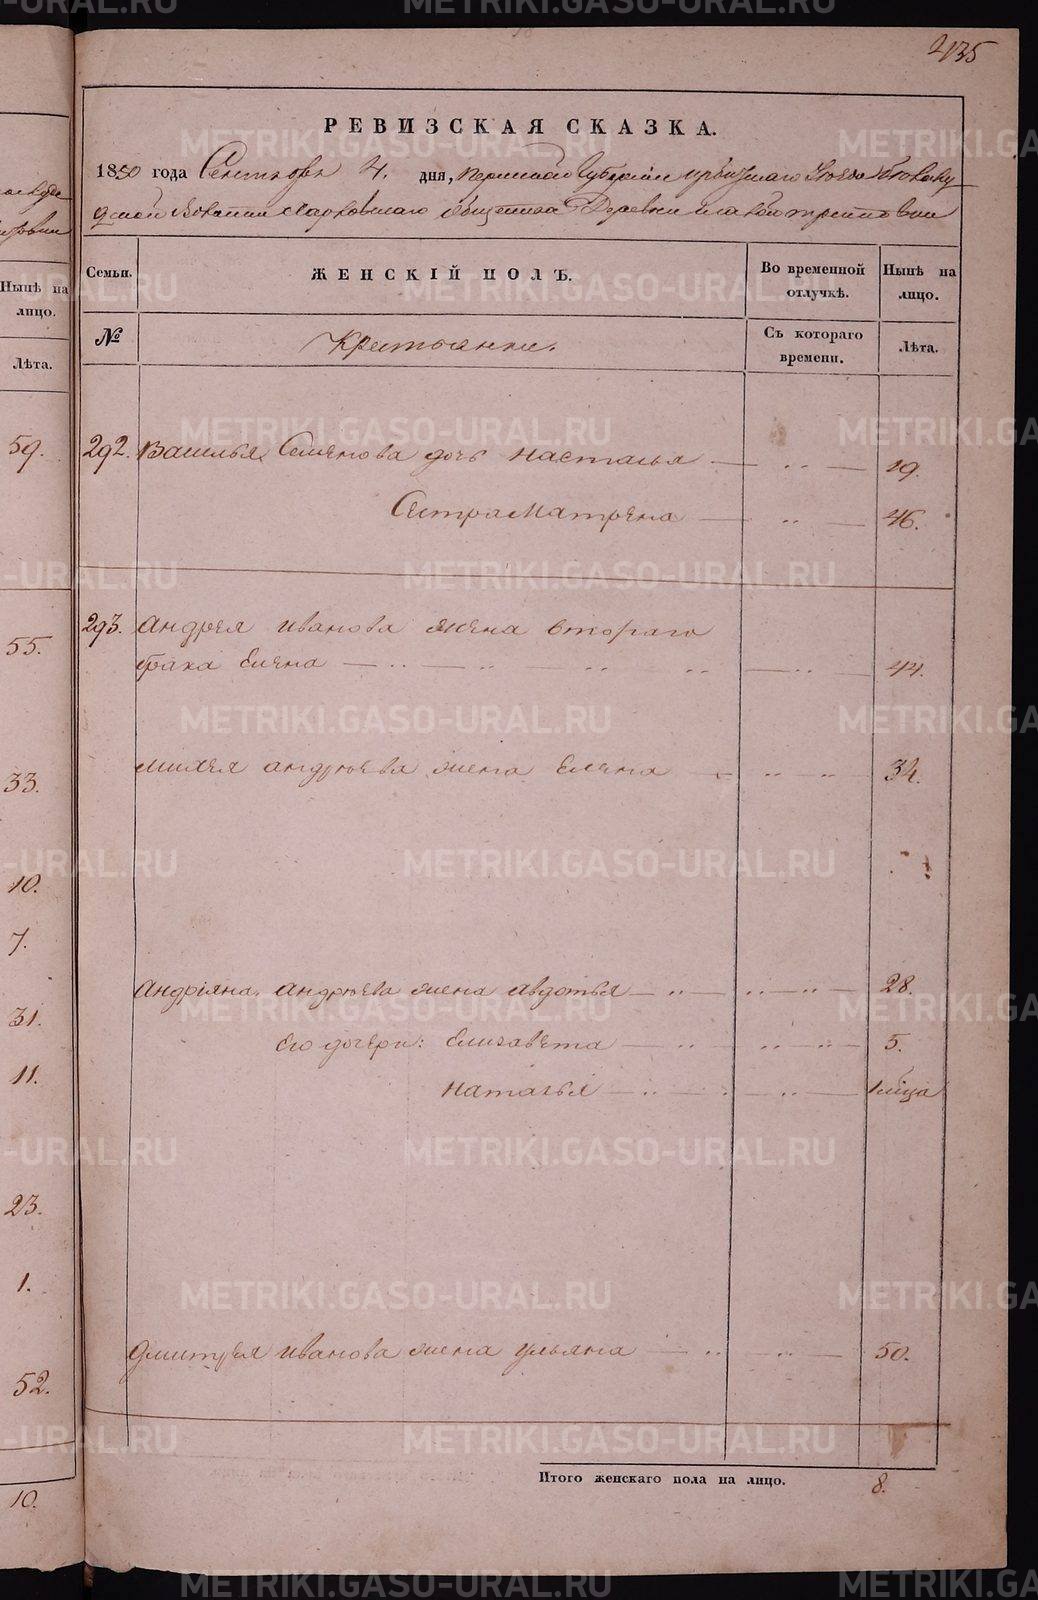 2135
РЕВИЗСКАЯ СКАЗКА.
1850 года Сентября 4. дня, Пермской Губерніи Ирбитскаго Уезда
волости Харловскаго общества Деревни
Семьи.
ЖЕНСКІЙ ПОЛЪ.
Во временной отлучкѣ.
Нынѣ на лицо.
№
Крестьянки.
Съ котораго времени.
Лѣта.
292. Василья Семенова дочь Настасья 19.
Сестра Матрена 46.
293. Андрея Иванова жена втораго
брака Елена 44.
Михея Андреева жена Елена 34.
Андріяна Андреева жена Авдотья 28.
Его дочери: Елизавета 5.
Наталья 1 мѣсца
Дмитрея Иванова жена Ульяна 50.
Итого женскаго пола на лицо. 8.
Нынѣ на лицо.
Лѣта.
59.
55.
33.
10.
7.
31.
11.
23.
1.
52.
10.
METRIKI.GASO-URAL.RU